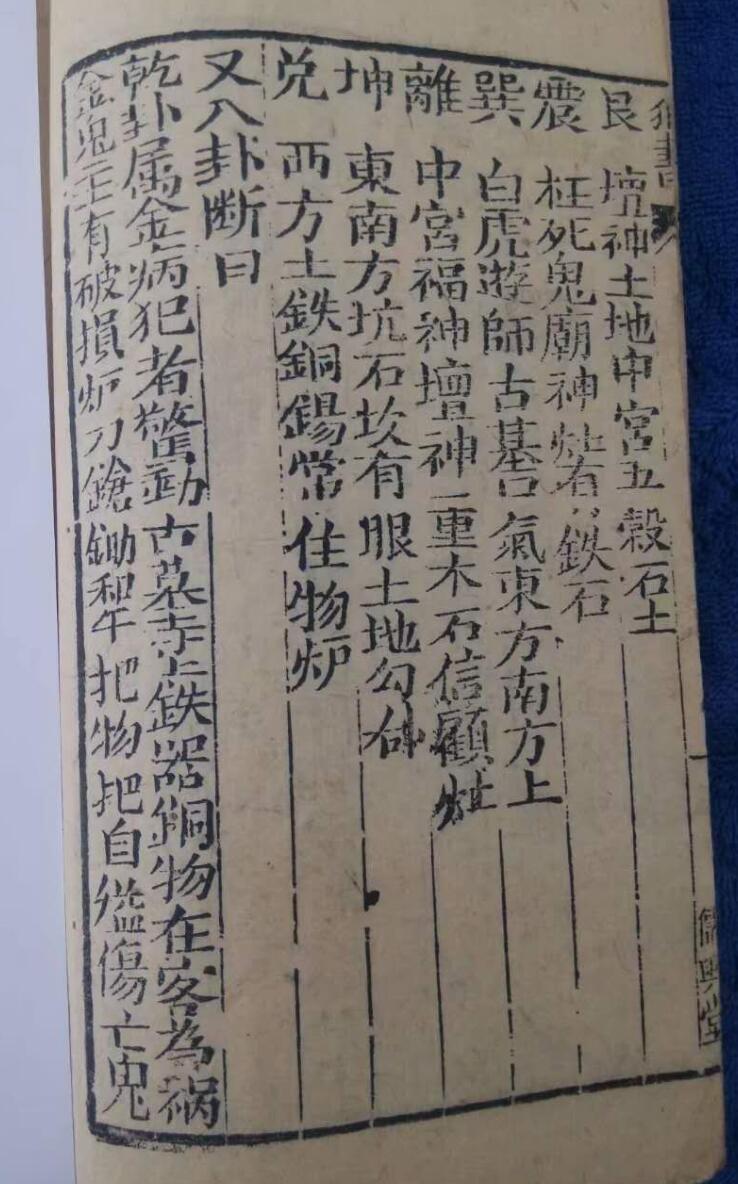 書
艮 壇神土地中宮五穀石土
震 枉死鬼廟神 鉄石
巽 白虎遊師古墓 氣東方南方上
離 中宮福神壇神一重木石信願
坤 東南方坑石坎有眼土地勾
兌 西方土鉄銅錫常住物炉
又八卦断曰
乾卦属金病犯者驚動古墓寺上鉄器銅物在客為禍
金鬼主有破損炉刀鎗鋤 把物把自縊傷亡鬼
一
儒興堂